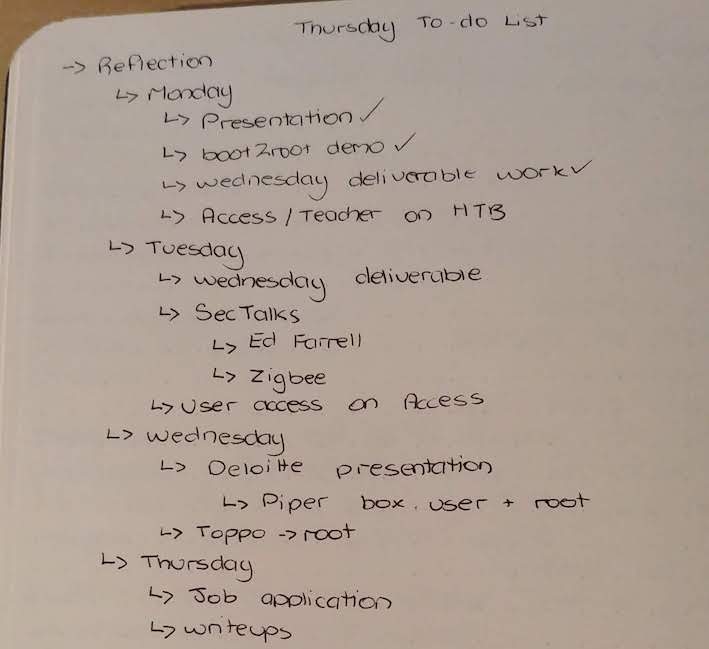 Thursday To-do List
-> Reflection
↳ Monday
↳ Presentation ✓
↳ boot2root demo ✓
↳ wednesday deliverable work ✓
↳ Access / Teacher on HTB
↳ Tuesday
↳ wednesday deliverable
↳ SecTalks
↳ Ed Farrell
↳ Zigbee
↳ User access on Access
↳ Wednesday
↳ Deloitte presentation
↳ Piper box. user + root
↳ Toppo -> root
↳ Thursday
↳ Job application
↳ writeups